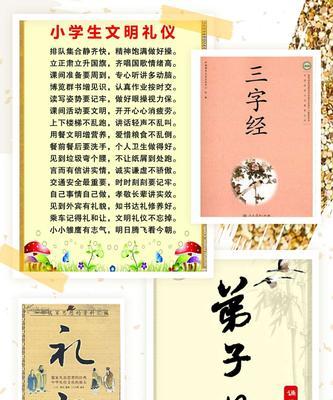 小学生文明礼仪
排队集合静齐快，精神饱满做好操。
立正肃立升国旗，齐唱国歌情绪高。
课间准备要周到，专心听讲多动脑。
博览群书增见识，认真作业按时交。
读写姿势要记牢，做好眼操视力保。
课间活动要文明，开开心心消疲劳。
上下楼梯不乱跑，讲话轻声不乱叫。
用餐文明增营养，爱惜粮食不乱倒。
餐前餐后要洗手，个人卫生做得好。
见到垃圾弯个腰，不让纸屑到处跑。
言而有信讲实情，诚实谦虚不骄傲。
交通安全最重要，时时刻刻要记牢。
自己事情自己做，孝敬长辈讲实效。
见到外宾有礼貌，知书达礼修养好。
乘车记得礼和让，文明礼仪不忘掉。
小小雏鹰有志气，明日腾飞看今朝。
三字经
弟子
礼
诵